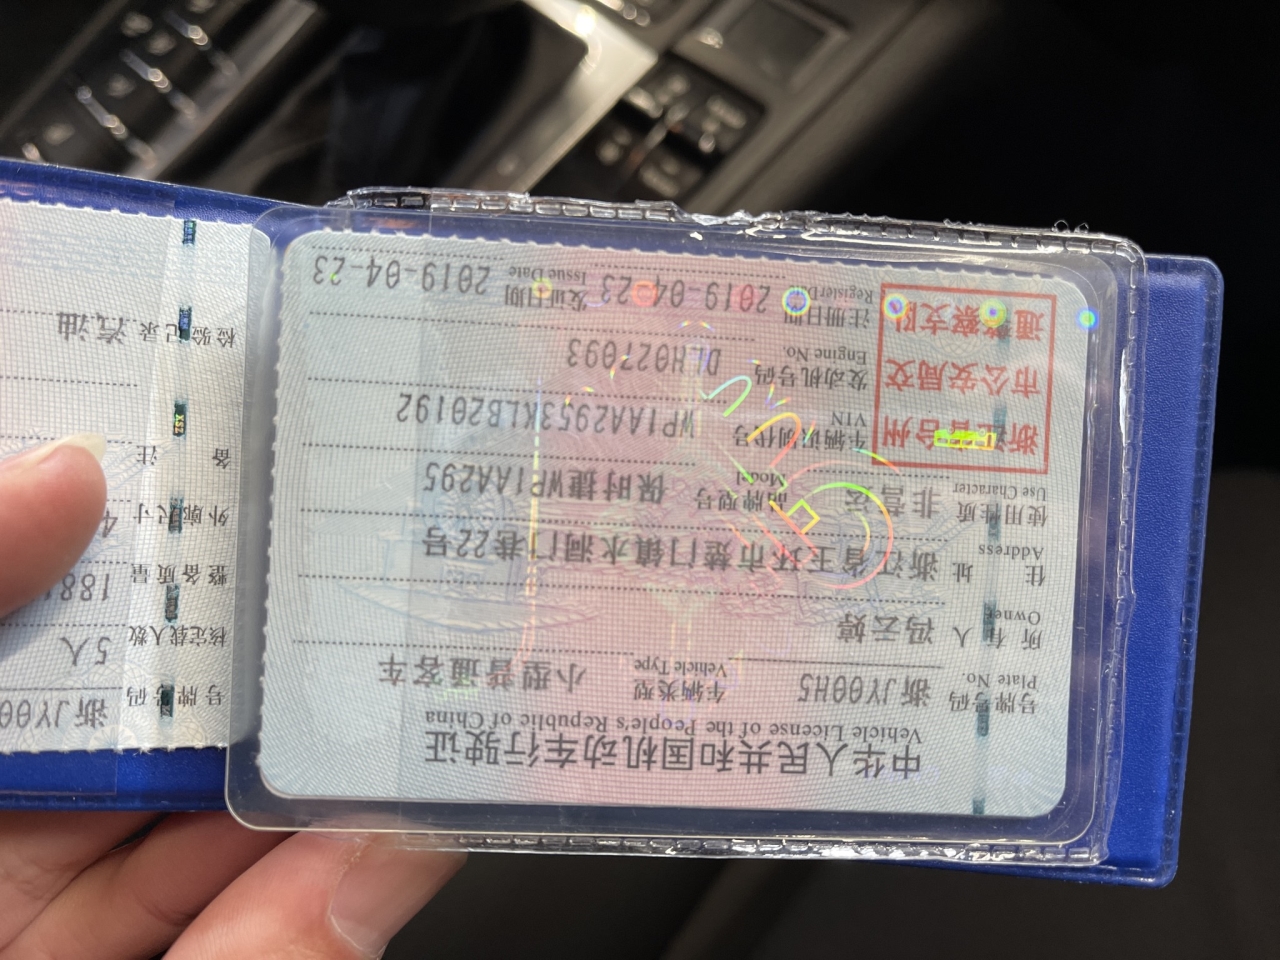 中华人民共和国机动车行驶证
Vehicle License of the People's Republic of China
号牌号码 浙JY00H5 车辆类型 小型普通客车
Plate No. Vehicle Type
所有人 冯云婷
Owner
住址 浙江省玉环市楚门镇水洞门巷22号
Address
使用性质 非营运 品牌型号 保时捷WP1AA295
Use Character Model
浙江省台州
市公安局交
通警察支队
车辆识别代号 WP1AA2953KLB20192
VIN
发动机号码 DLH027093
Engine No.
注册日期 2019-04-23 发证日期 2019-04-23
Register Date Issue Date
号牌号码 浙JY00
核定载人数 5人
整备质量 188
外廓尺寸 4
备注
检验记录 汽油